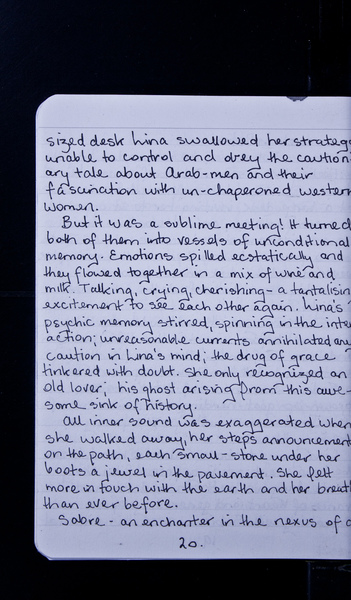 sized desk Lina swallowed her strateg
unable to control and obey the caution
ary tale about Arab-men and their
fascination with un-chaperoned western
women.
But it was a sublime meeting! It turned
both of them into vessels of unconditional
memory. Emotions spilled ecstatically and
they flowed together in a mix of wine and
milk. Talking, crying, cherishing - a tantalisin
excitement to see each other again. Lina's
psychic memory stirred, spinning in the inte
action; unreasonable currents annihilated any
caution in Lina's mind; the drug of grace
tinkered with doubt. She only recognized an
old lover; his ghost arising from this awe-
some sink of history.
All inner sound was exaggerated when
she walked away, her steps announcement
on the path, each small-stone under her
boots a jewel in the pavement. She felt
more in touch with the earth and her breat
than ever before.
Sabre - an enchanter in the nexus of
20.